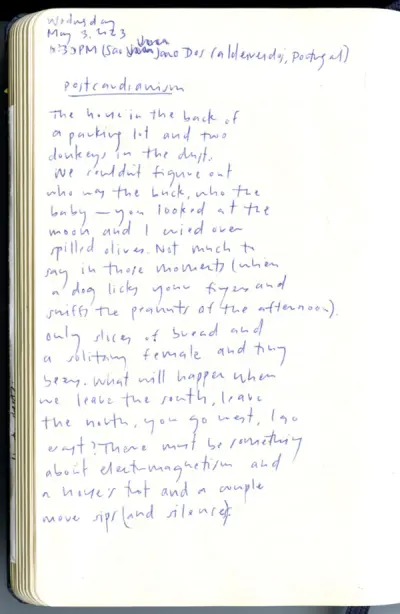 Wednesday
May 3, 2023
5:30PM (Sao Joao Dos Caldeireiros, Portugal)
Postcardianism
The house in the back of
a parking lot and two
donkeys in the dust.
We couldn't figure out
who was the buck, who the
baby — you looked at the
moon and I cried over
spilled olives. Not much to
say in those moments (when
a dog licks your fingers and
sniffs the peanuts of the afternoon).
only slices of bread and
a solitary female and tiny
bears. What will happen when
we leave the south, leave
the north, you go west, I go
east? There must be something
about electromagnetism and
a horse's trot and a couple
more sips (and silence).